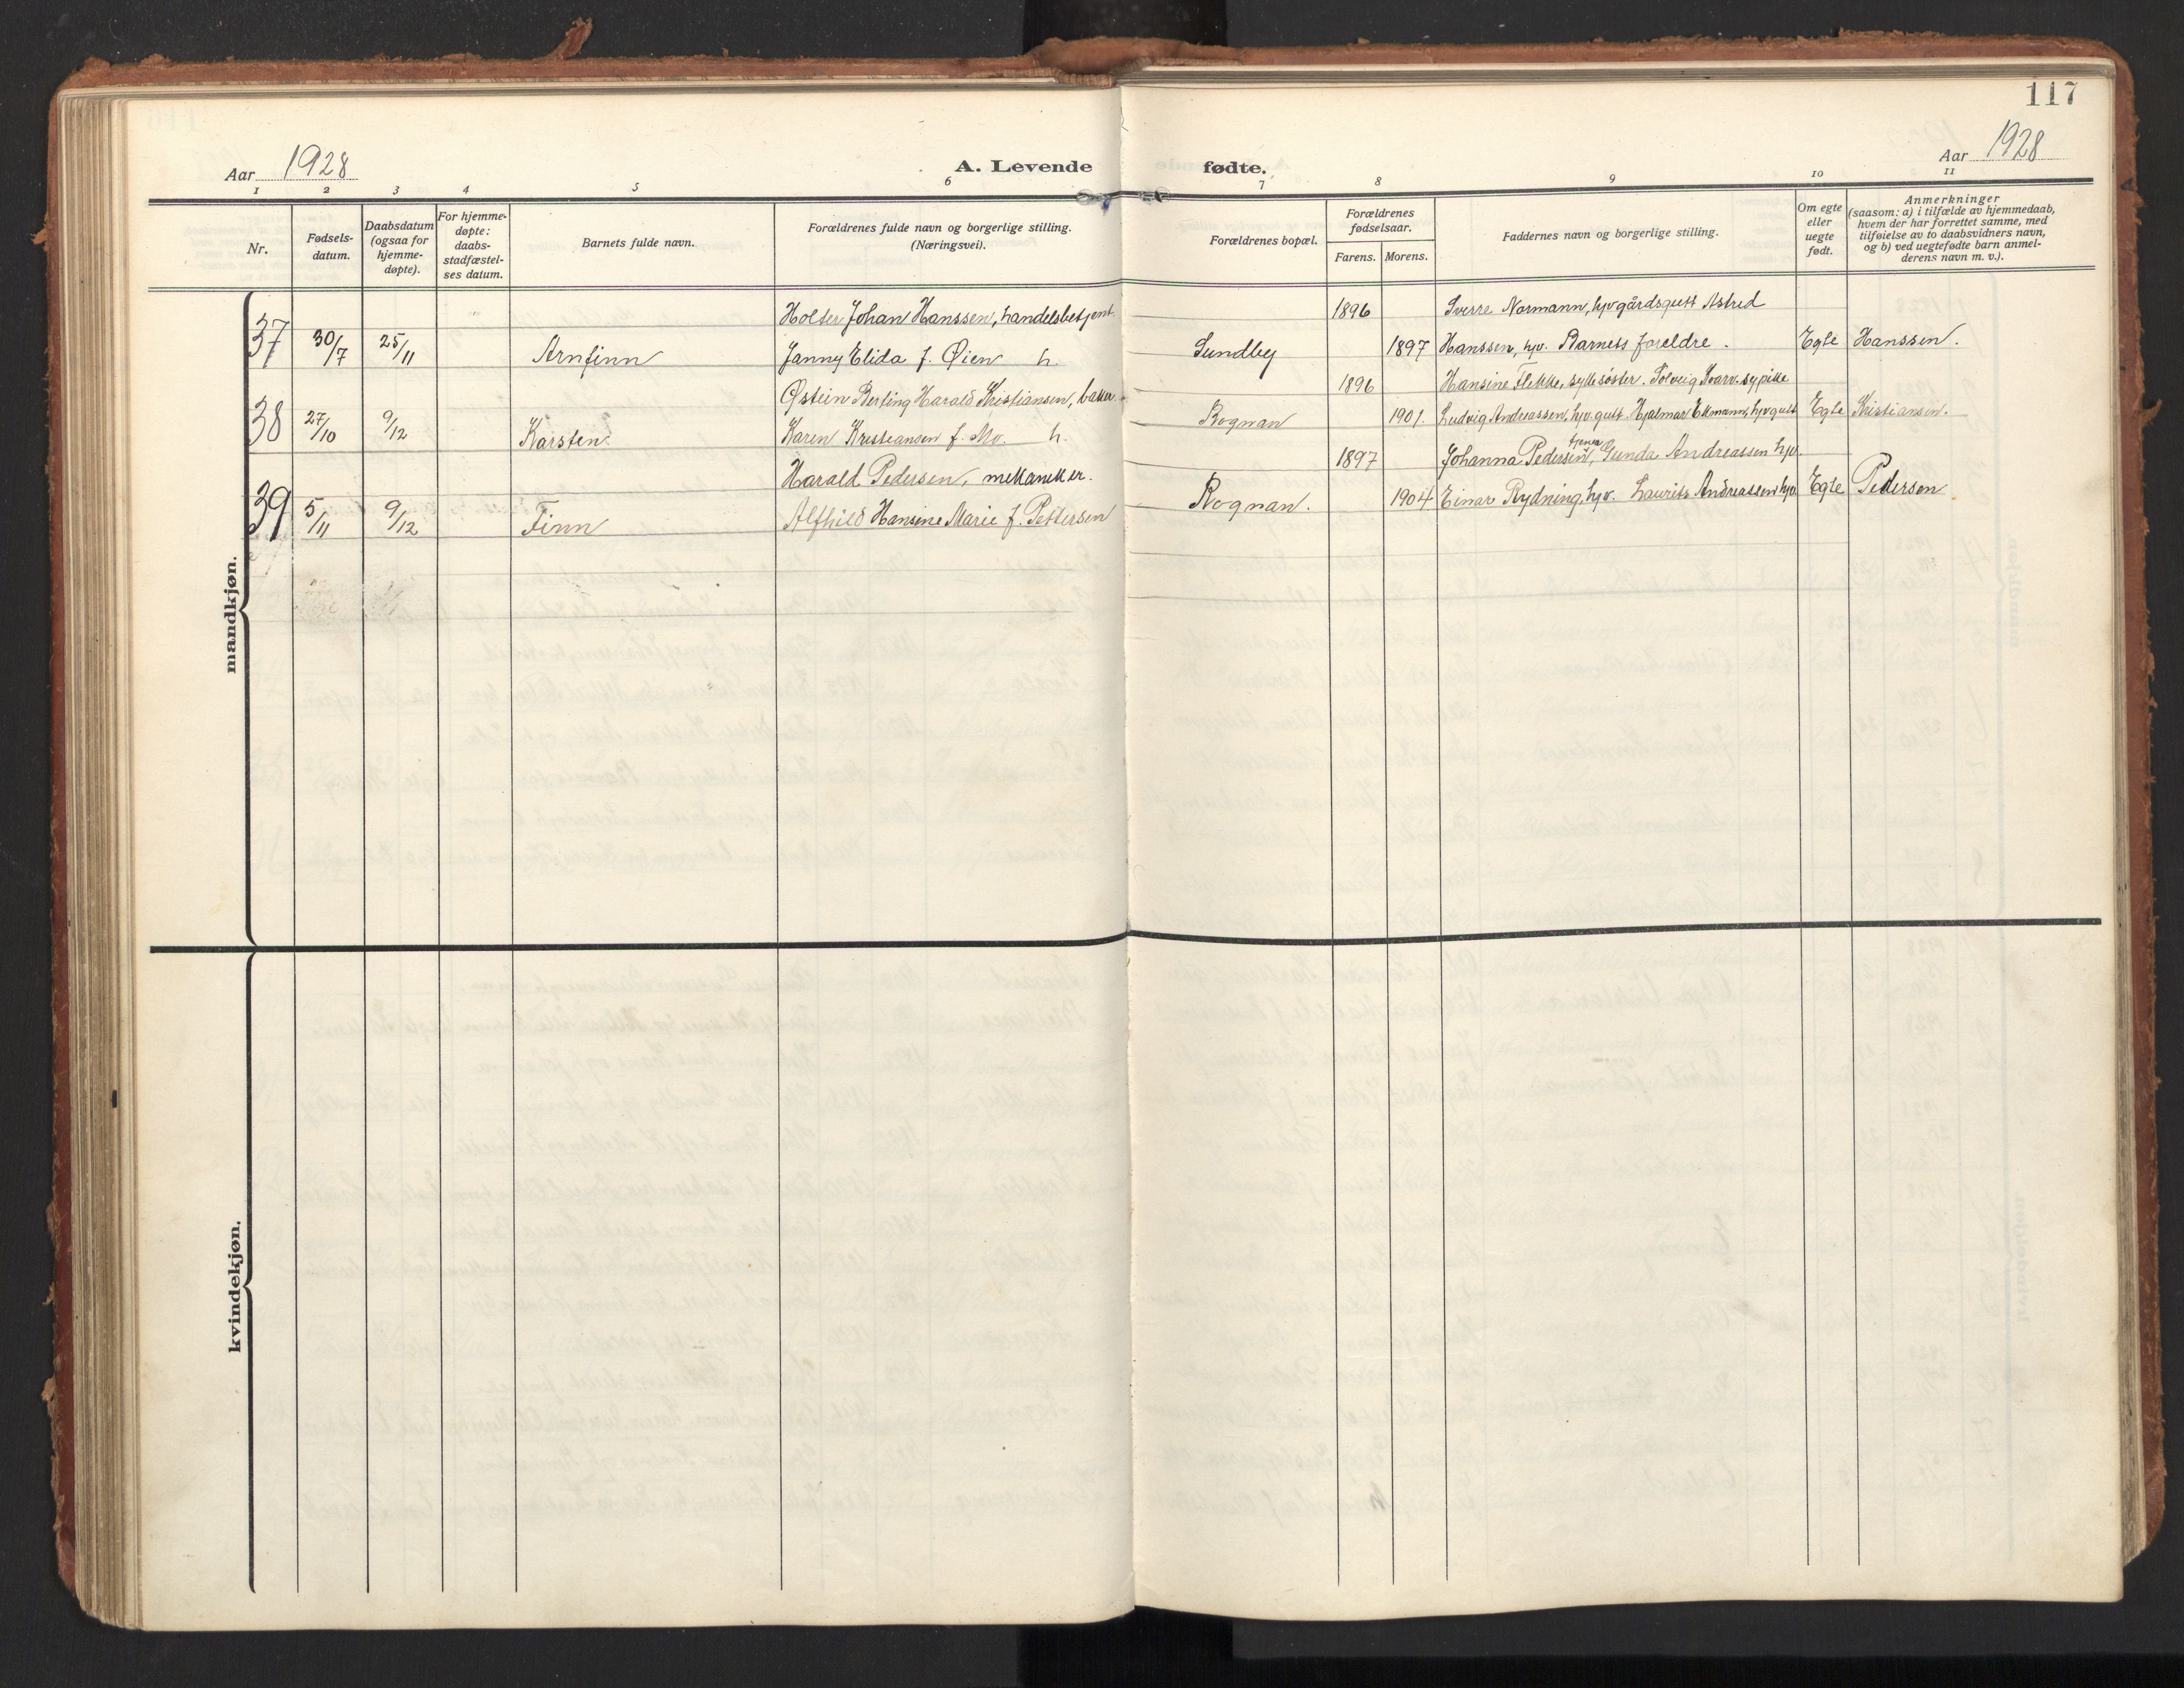 117
Aar 1928
A. Levende fødte.
Aar 1928
1 2 3 4 5 6 7 8 9 10 11
Nr.
Fødsels-
datum.
Daabsdatum
(ogsaa for
hjemme-
døpte).
For hjemme-
døpte:
daabs-
stadfæstel-
ses datum.
Barnets fulde navn.
Forældrenes fulde navn og borgerlige stilling.
(Næringsvei).
Forældrenes bopæl.
Forældrenes
fødselsaar.
Farens. Morens.
Faddernes navn og borgerlige stilling.
Om egte
eller
uegte
født.
Anmerkninger
(saasom: a) i tilfælde av hjemmedaab,
hvem der har forrettet samme, med
tilføielse av to daabsvidners navn,
og b) ved uegtefødte barn anmel-
derens navn m. v.).
mandkjøn.
Holter Johan Hanssen, handelsbetjent. 1896 Sverre Normann, hjv gårdsgutt Astrid
37 30/7 25/11 Arnfinn Janny Elida f. Øien h. Sundby 1897 Hanssen, hjv. Barnets foreldre. Egte Hanssen.
Østein Berting Harald Kristiansen, baker. 1896 Hansine Flekke, sykesøster. Solveig Kvarv. sypike
38 27/10 9/12 Karsten. Karen Kristiansen f. Mo. h. Rognan 1901. Ludvig Andreassen, hjv. gutt. Hjalmar Ekmann, hjv gutt Egte Kristiansen.
Harald Pedersen, mekaniker. 1897 Johanna Pedersen, tjener Gunda Andreassen hjv.
39 5/11 9/12 Finn Alfhild Hansine Marie f. Pettersen Rognan. 1904 Einar Rydning, hjv. Laurits Andreassen hjv. Egte Pedersen
kvindekjøn.